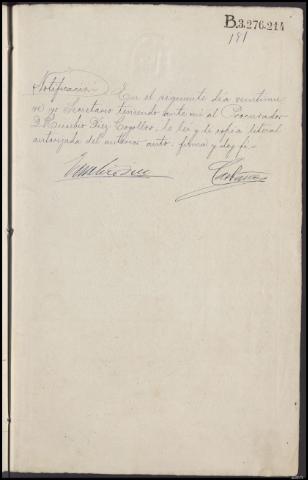 B.3.276.214
181
Notificación En el siguiente día veintinue
ve yo Secretario teniendo ante mi al Procurador
D. Eusebio Diez Cogollos, le lei y di copia literal
autorizada del anterior auto: firma y doy fé=